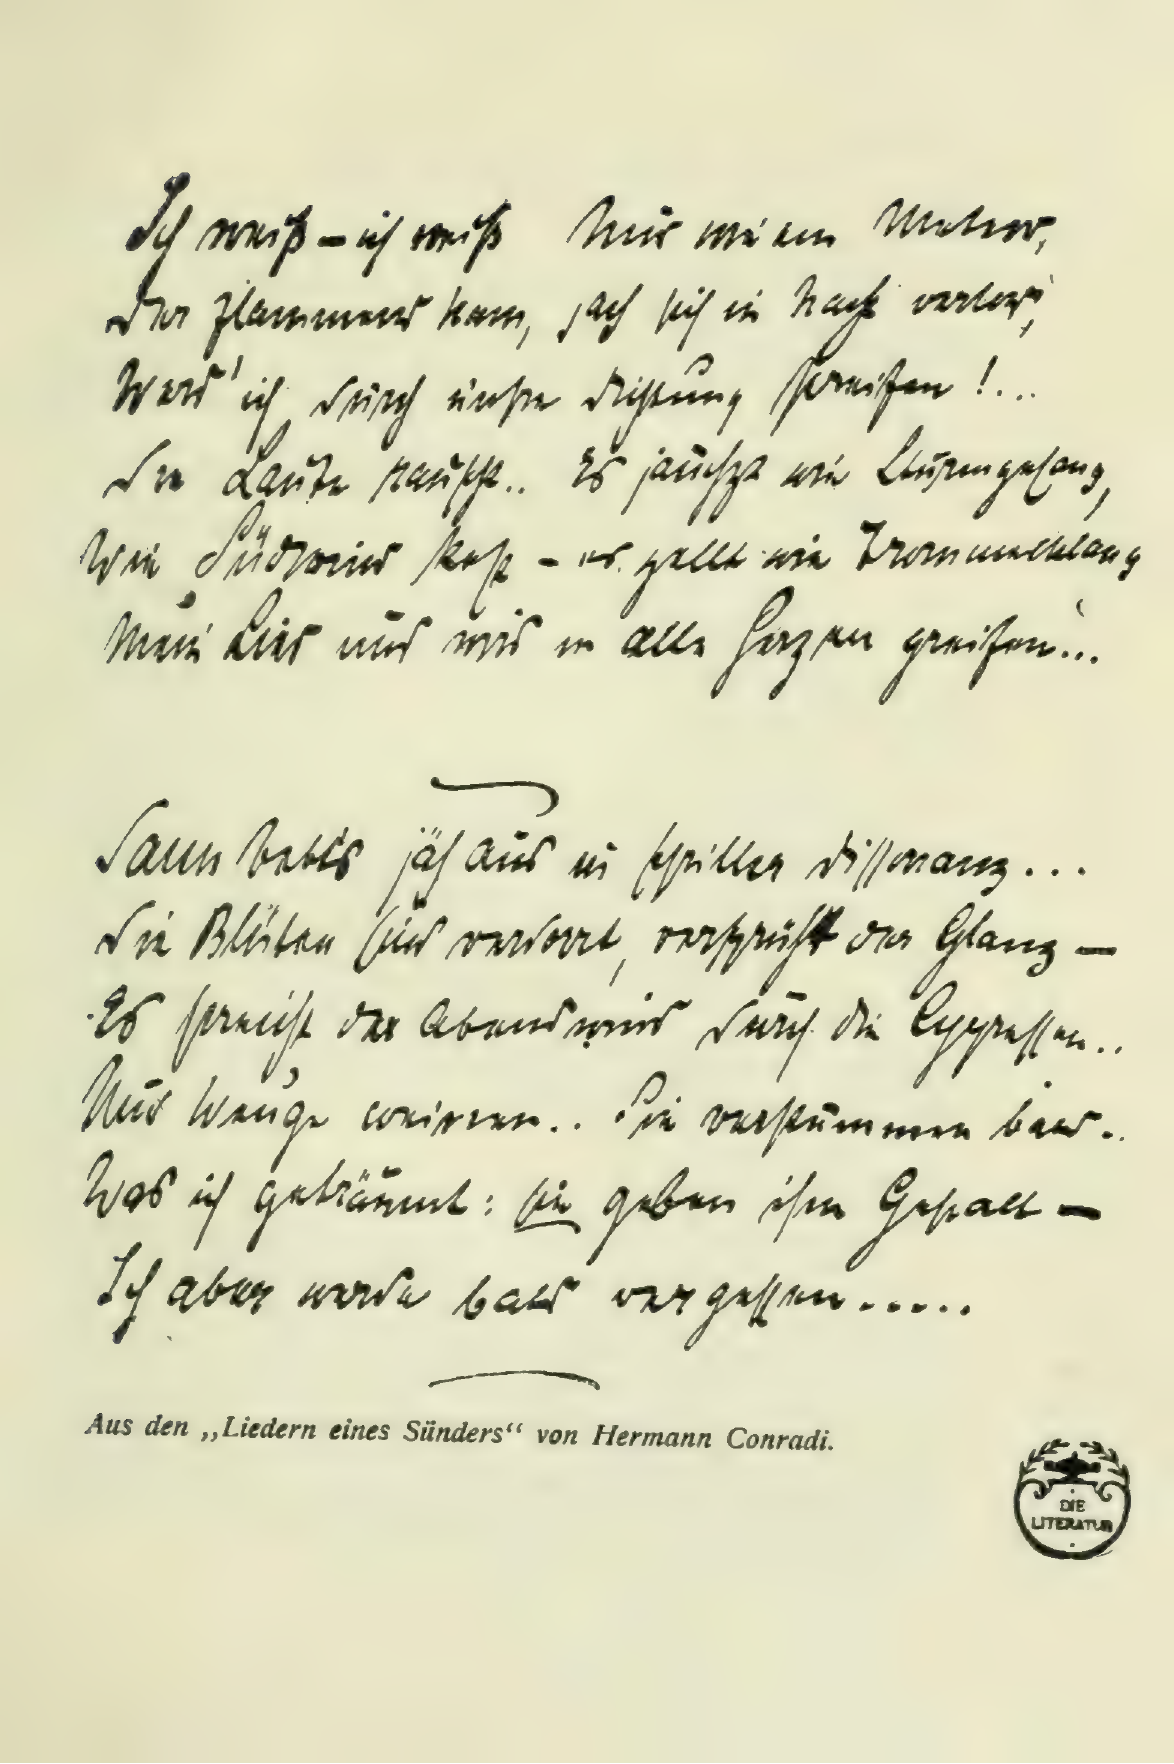 Ich weiß – ich weiß Nur wie ein Meteor,
Der flammend kam, jach sich in Nacht verlor,
Werd' ich durch unsre Dichtung streifen!...
Die Laute rauscht.. Es jauchzt wie Sturmgesang,
Wie Südwind kost – es gellt wie Trommelklang
Mein Lied und wird in alle Herzen greifen...
Dann bebt's jäh aus in schriller Dissonanz...
Die Blüten sind verdorrt, versprüht der Glanz –
Es streicht der Abendwind durch die Cypressen..
Nur wen'ge weinen.. Sie verstummen bald..
Was ich geträumt: sie geben ihm Gestalt –
Ich aber werde bald vergessen......
Aus den „Liedern eines Sünders“ von Hermann Conradi.
DIE
LITERATUR